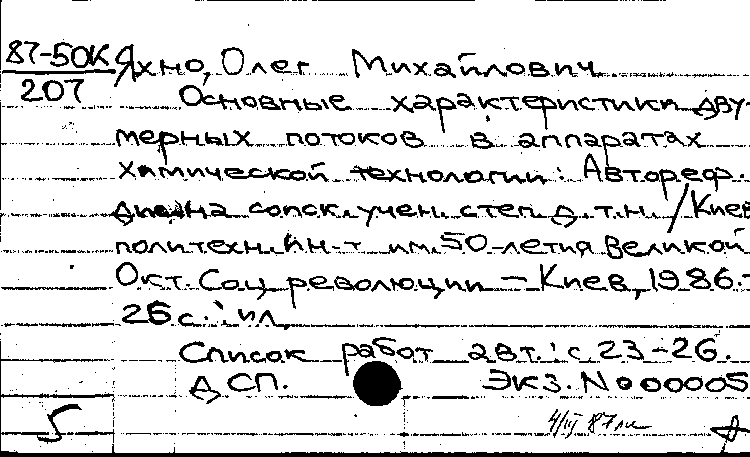 87-50К Яхно, Олег Михайлович
207
Основные характеристики дву-
мерных потоков в аппаратах
химической технологии: Автореф.
дис. на соиск. учен. степ. д.т.н. / Киев.
политехн. ин-т им. 50-летия Великой
Окт. Соц. революции – Киев, 1986. –
26 с.: ил.
Список работ авт.: с. 23-26.
ДСП. Экз. № 00005
5 4/III 87